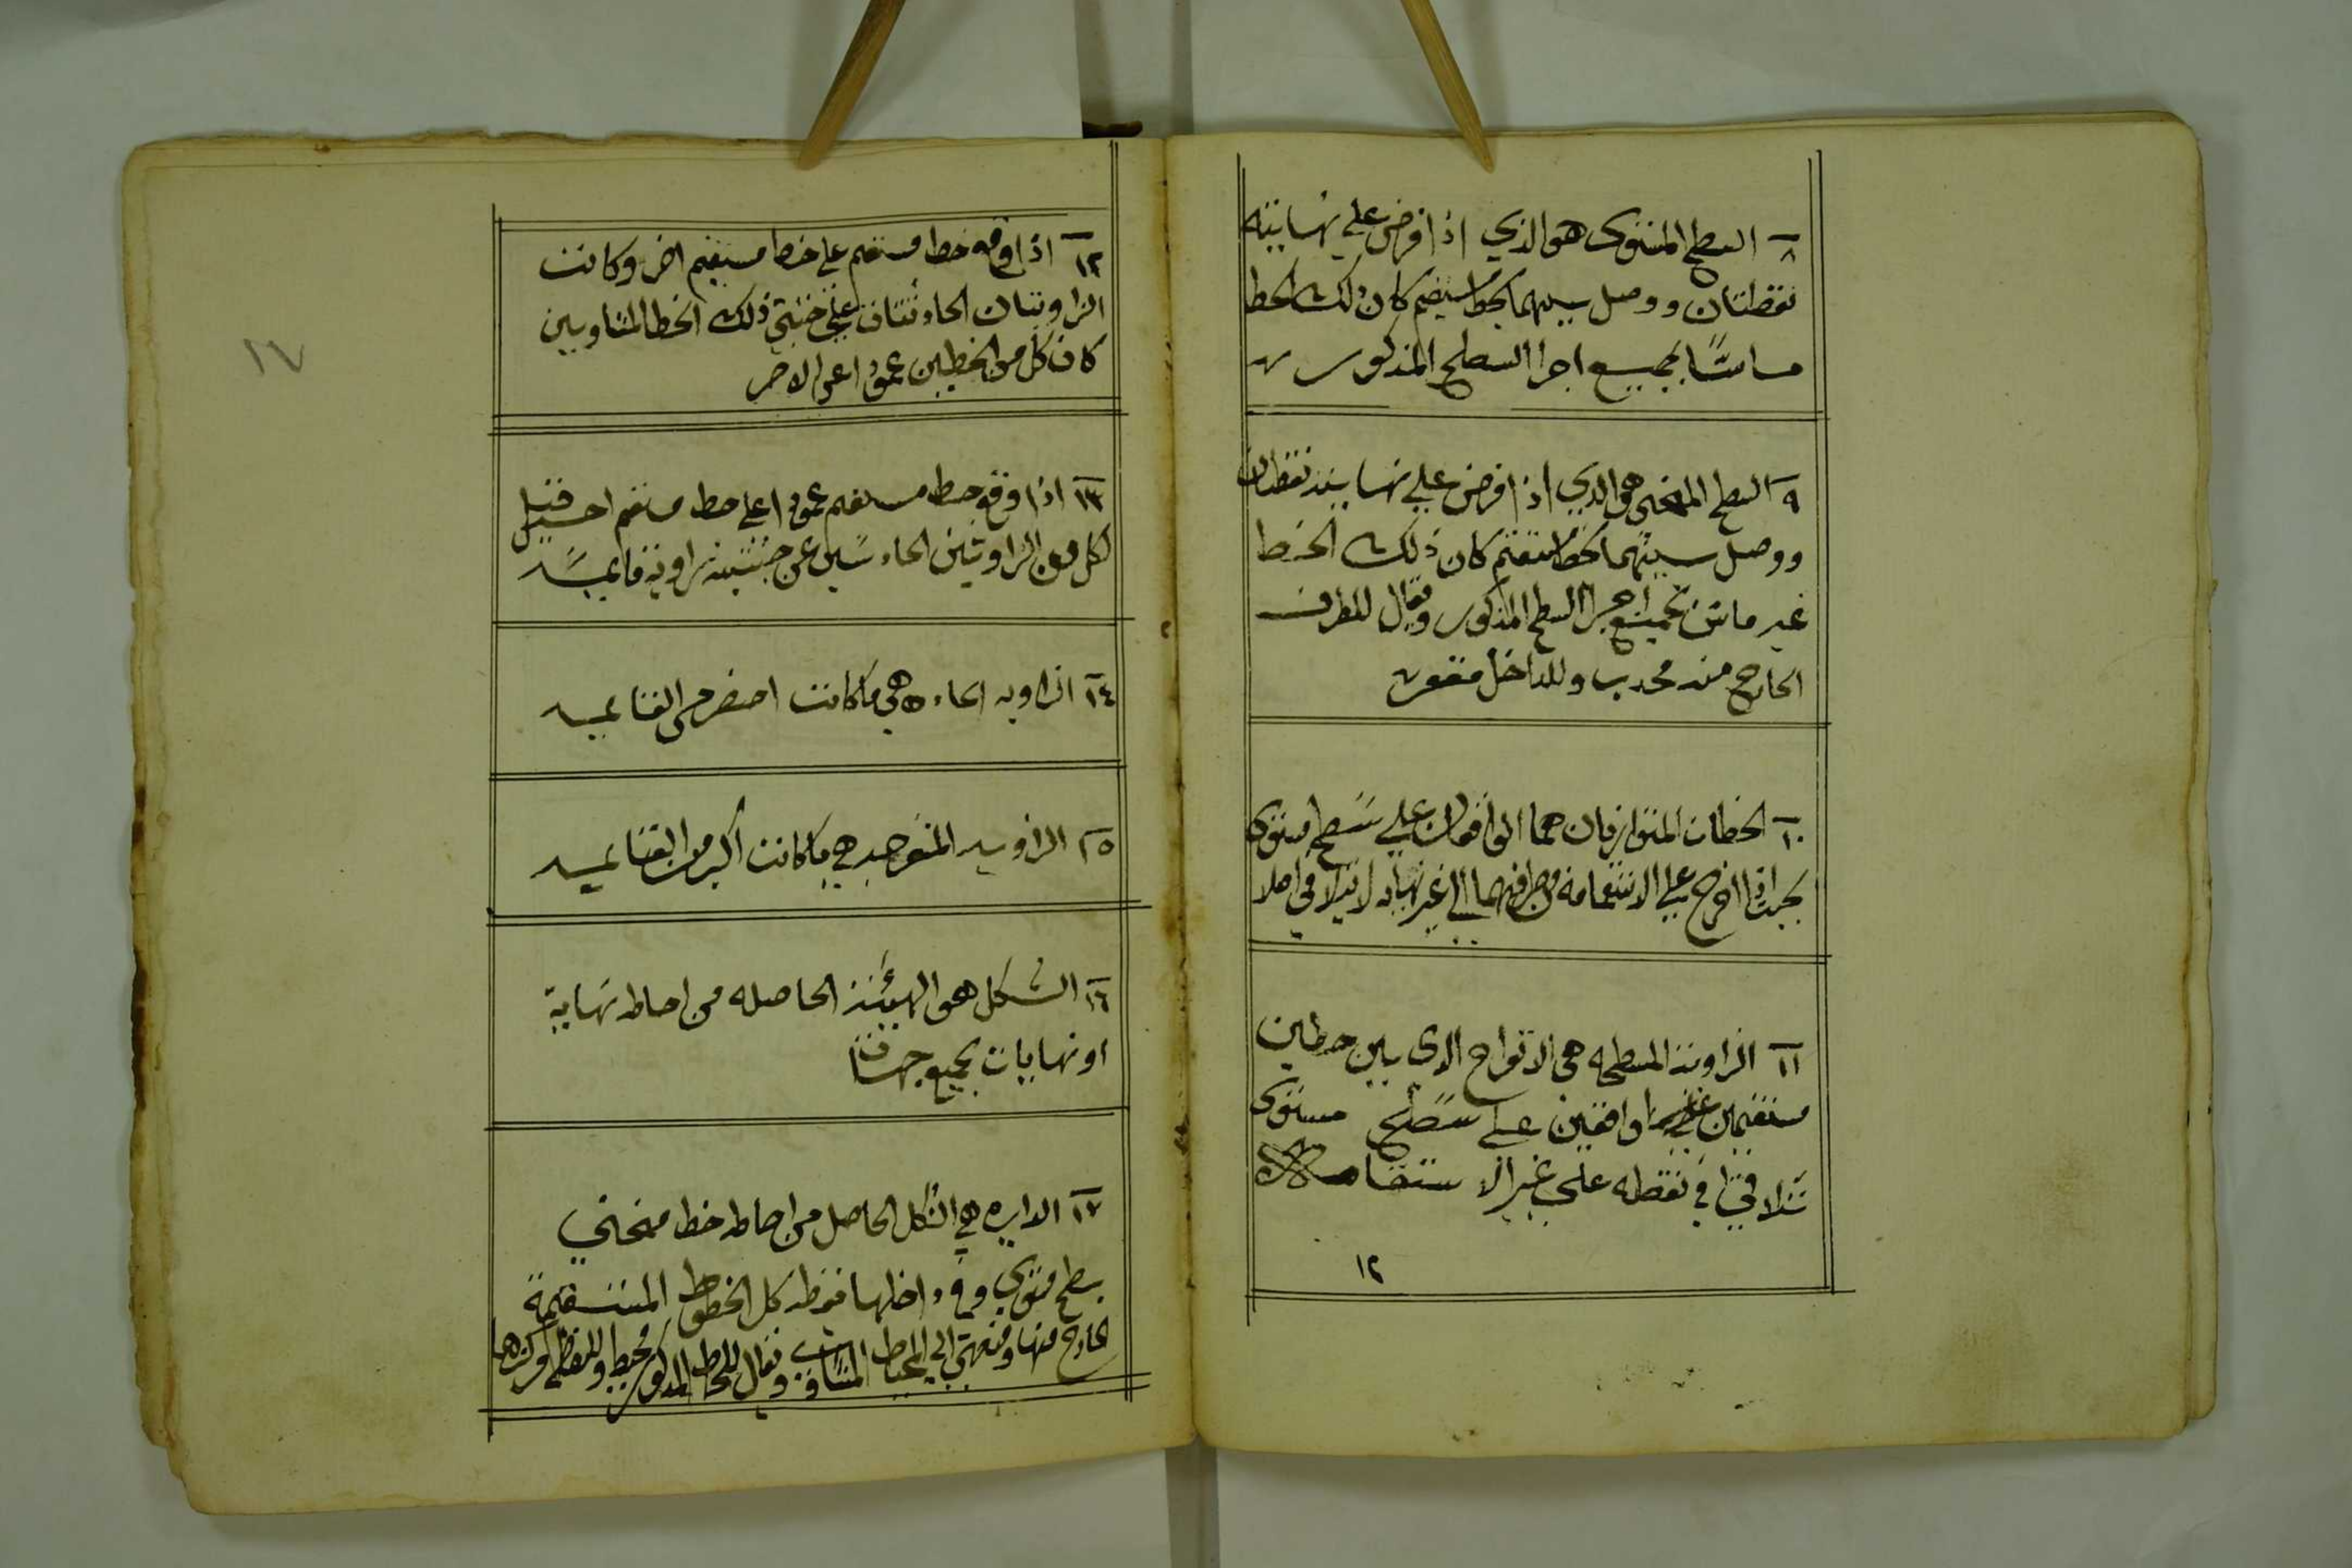 ٨ السطح المستوى هو الذي اذا فرض علي نهايته
نقطتان ووصل بينهما بخط مستقيم كان ذلك الخط
مماسًا بجميع اجزا السطح المذكور
٩ السطح المنحنى هو الذي اذا فرض علي نهايته نقطتان
ووصل بينهما بخط مستقيم كان ذلك الخط
غير مماس بجميع اجزا السطح المذكور ويقال للطرف
الخارج منه محدب وللداخل مقعر
١٠ الخطان المتوازيان هما الواقعان علي سطح مستوى
بحيث اذا اخرج علي الاستقامة من طرفيهما الي غير نهايه لا يتلاقي اصلا
١١ الزاوية المسطحه هي الانفراج الذى بين خطين
مستقيمين واقعين علي سطح مستوى
تتلاقي في نقطه علي غير الاستقامه
١٢
١٢ اذا وقع خط مستقيم علي خط مستقيم اخر وكانت
الزاويتان الحادثتان علي جنبتي ذلك الخط المتساويين
كان كل من الخطين عمودا على الاخر
١٣ اذا وقع خط مستقيم عمودا علي خط مستقيم اخر قيل
لكل من الزاويتين الحادثتين عن جنبتيه زاوية قايمه
١٤ الزاويه الحاده هي ما كانت اصغر من القايمه
١٥ الزاويه المنفرجه هي ما كانت أكبر من القايمه
١٦ الشكل هو الهيئة الحاصله من احاطه نهاية
او نهايات بجميع جهاتها
١٧ الدايره هي الشكل الحاصل من احاطه خط منحني
بسطح مستوي وفي داخلها نقطه كل الخطوط المستقيمة
الخارج منها ومنتهي الي المحيط المتساويه ويقال للخط المذكور محيط وللنقطه مركزها
١٧